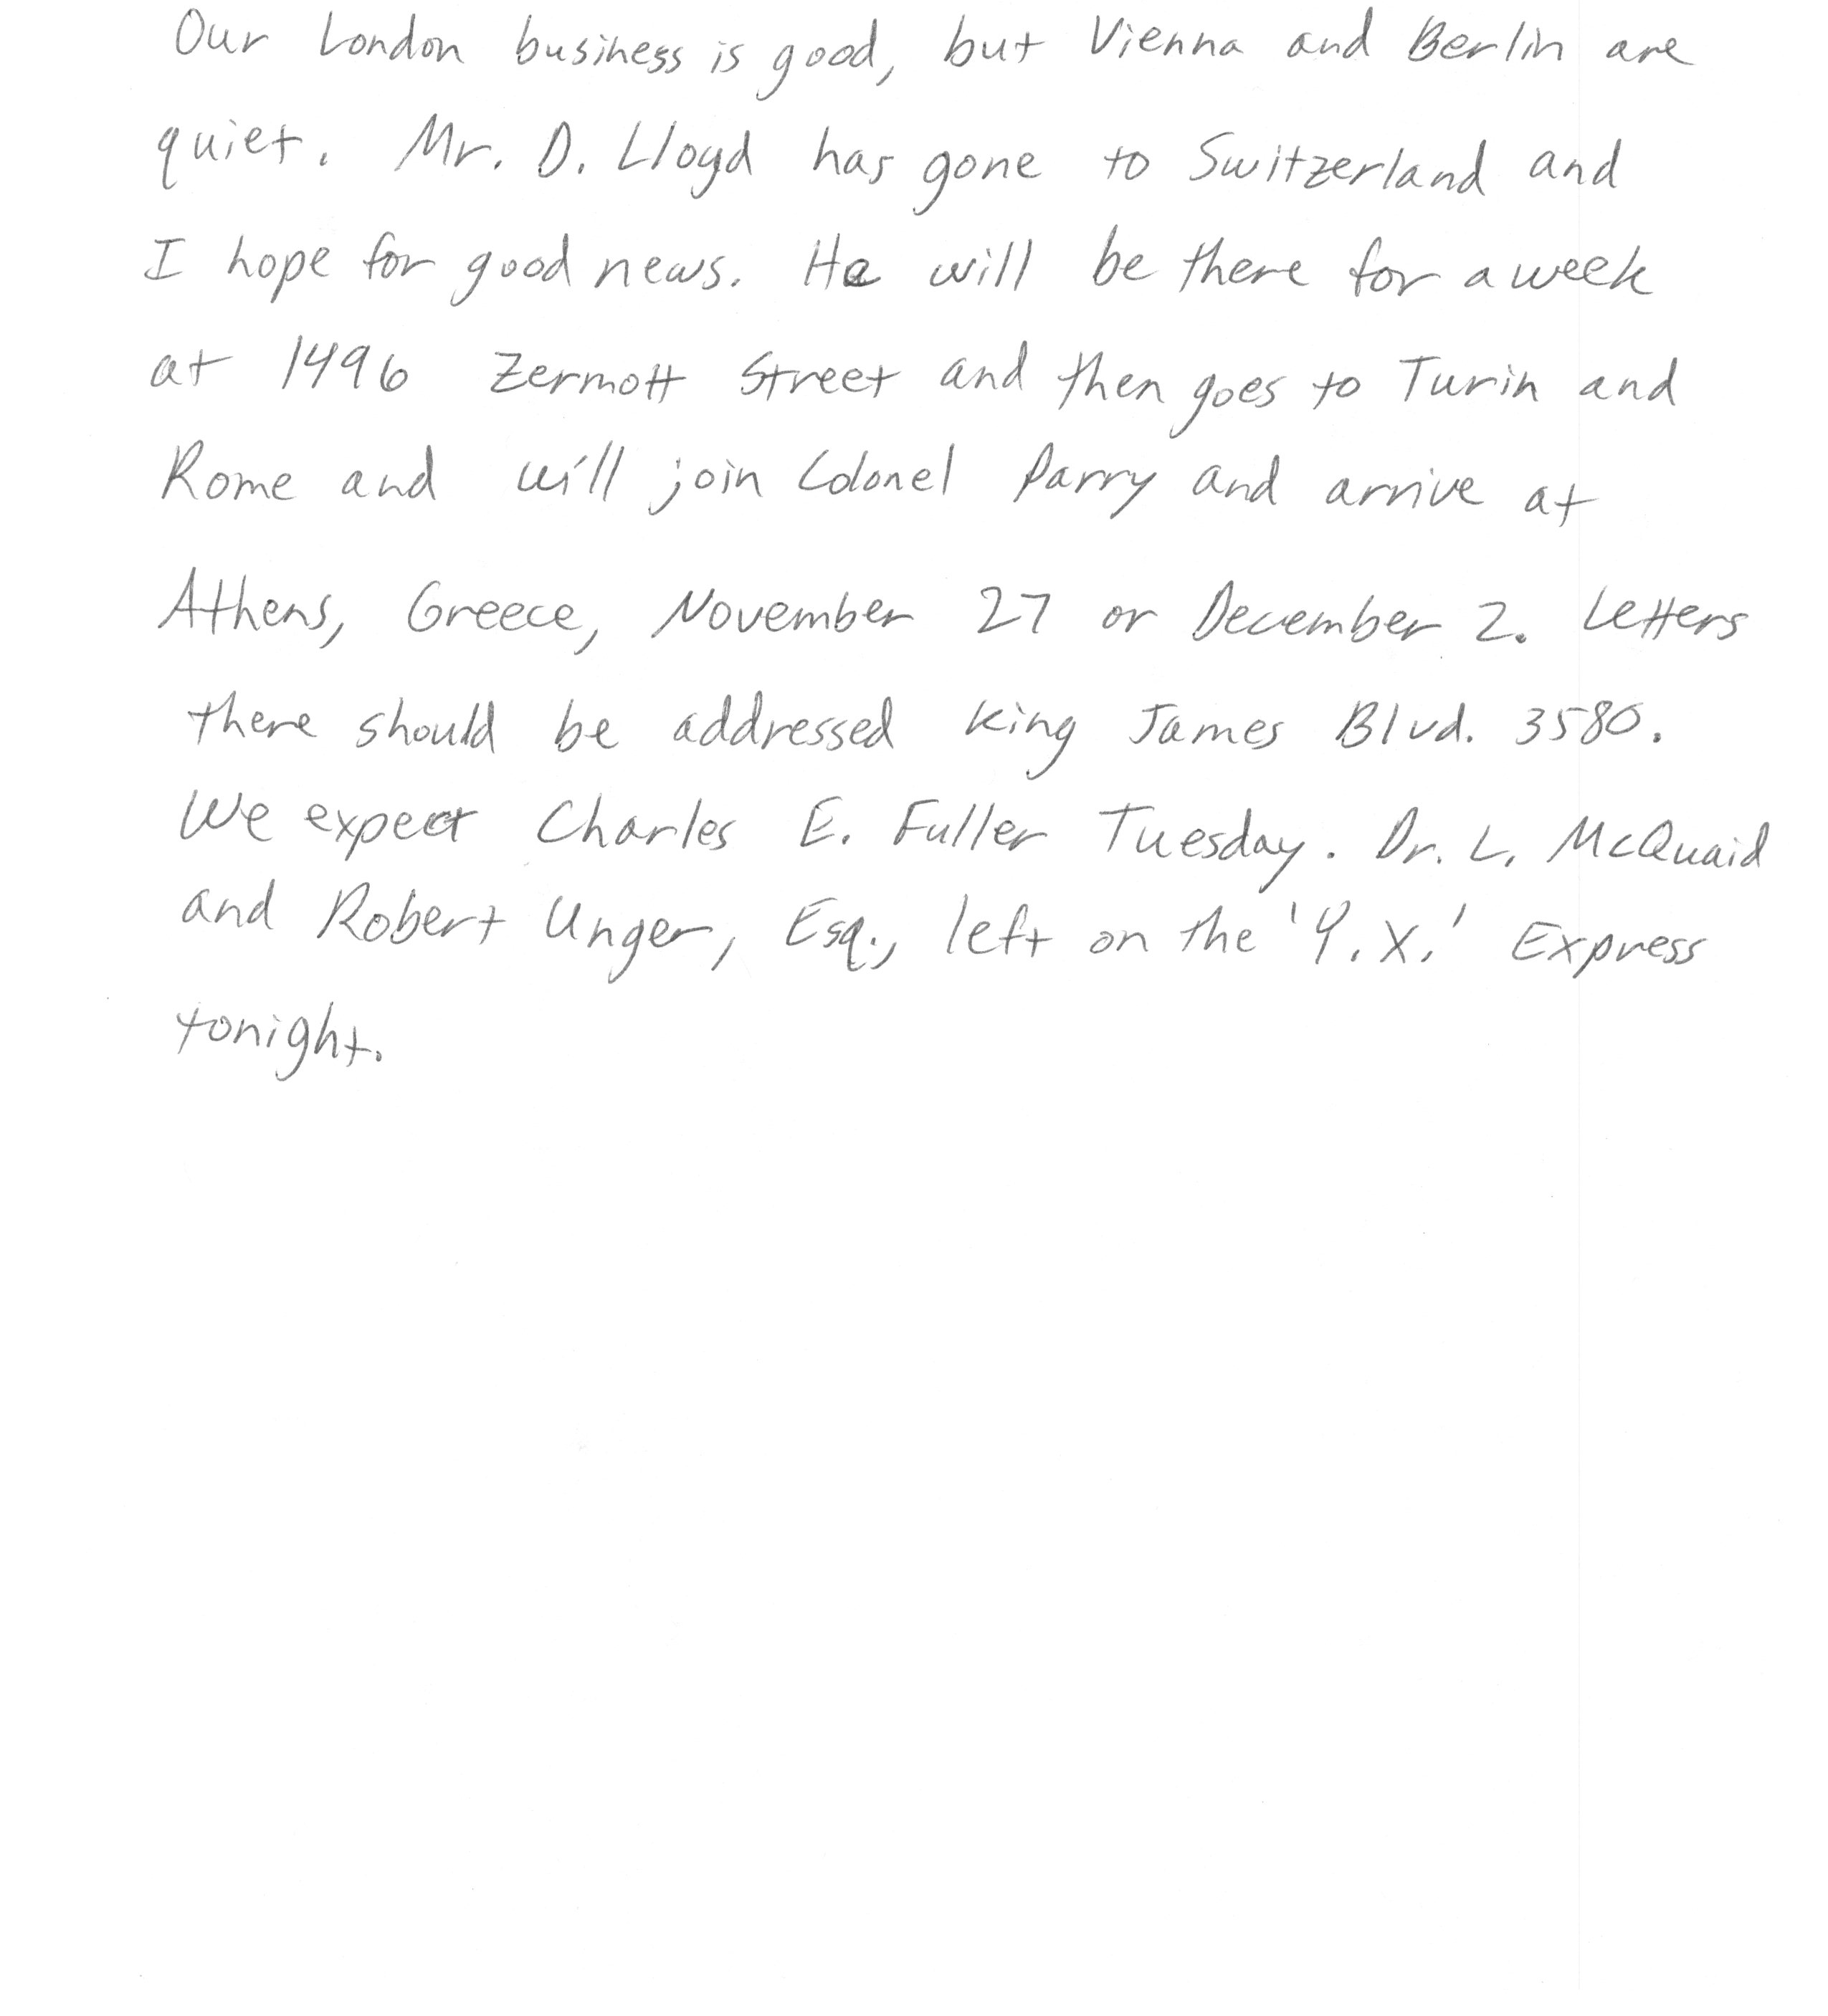 Our London business is good, but Vienna and Berlin are
quiet. Mr. D. Lloyd has gone to Switzerland and
I hope for good news. He will be there for a week
at 1496 Zermott Street and then goes to Turin and
Rome and will join Colonel Parry and arrive at
Athens, Greece, November 27 or December 2. Letters
there should be addressed King James Blvd. 3580.
We expect Charles E. Fuller Tuesday. Dr. L. McQuaid
and Robert Unger, Esq., left on the 'Y.X.' Express
tonight.